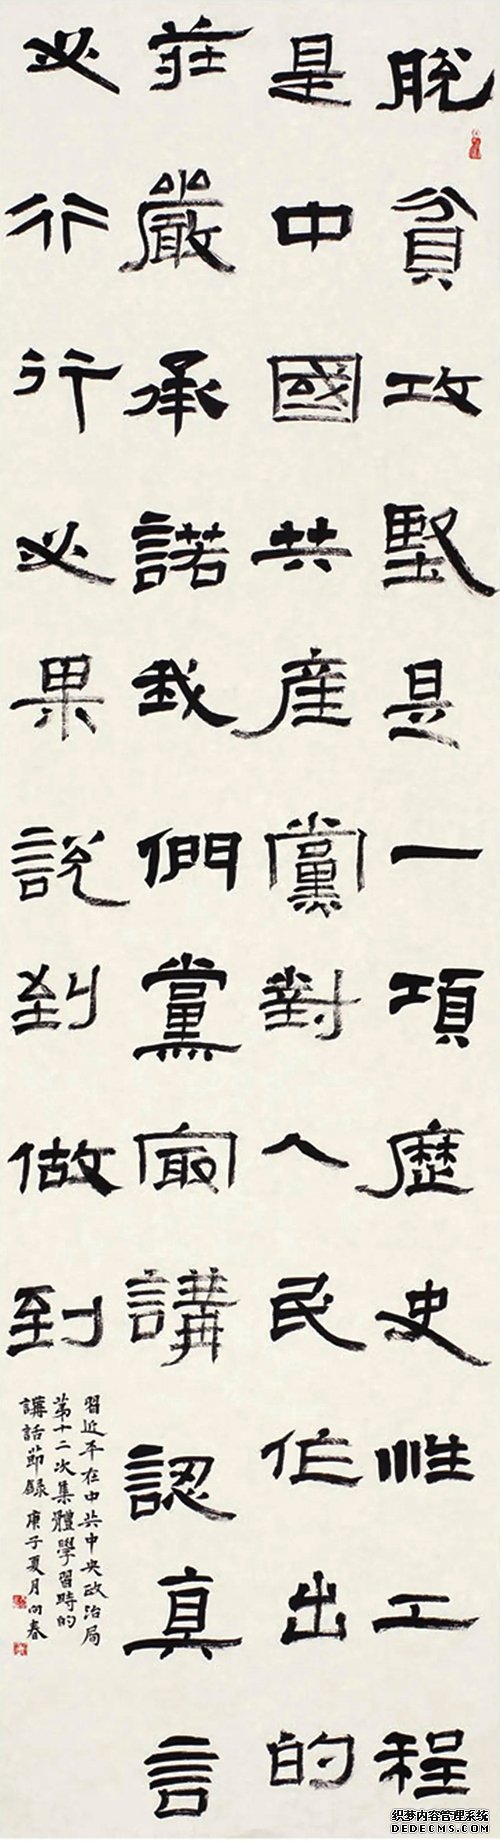 脫貧攻堅是一項歷史性工程
是中國共産黨對人民作出的
莊嚴承諾我們黨最講認真言
必行行必果說到做到
習近平在中共中央政治局
第十二次集體學習時的
講話節錄 庚子夏月向春
织梦内容管理系统
DEDECMS.COM